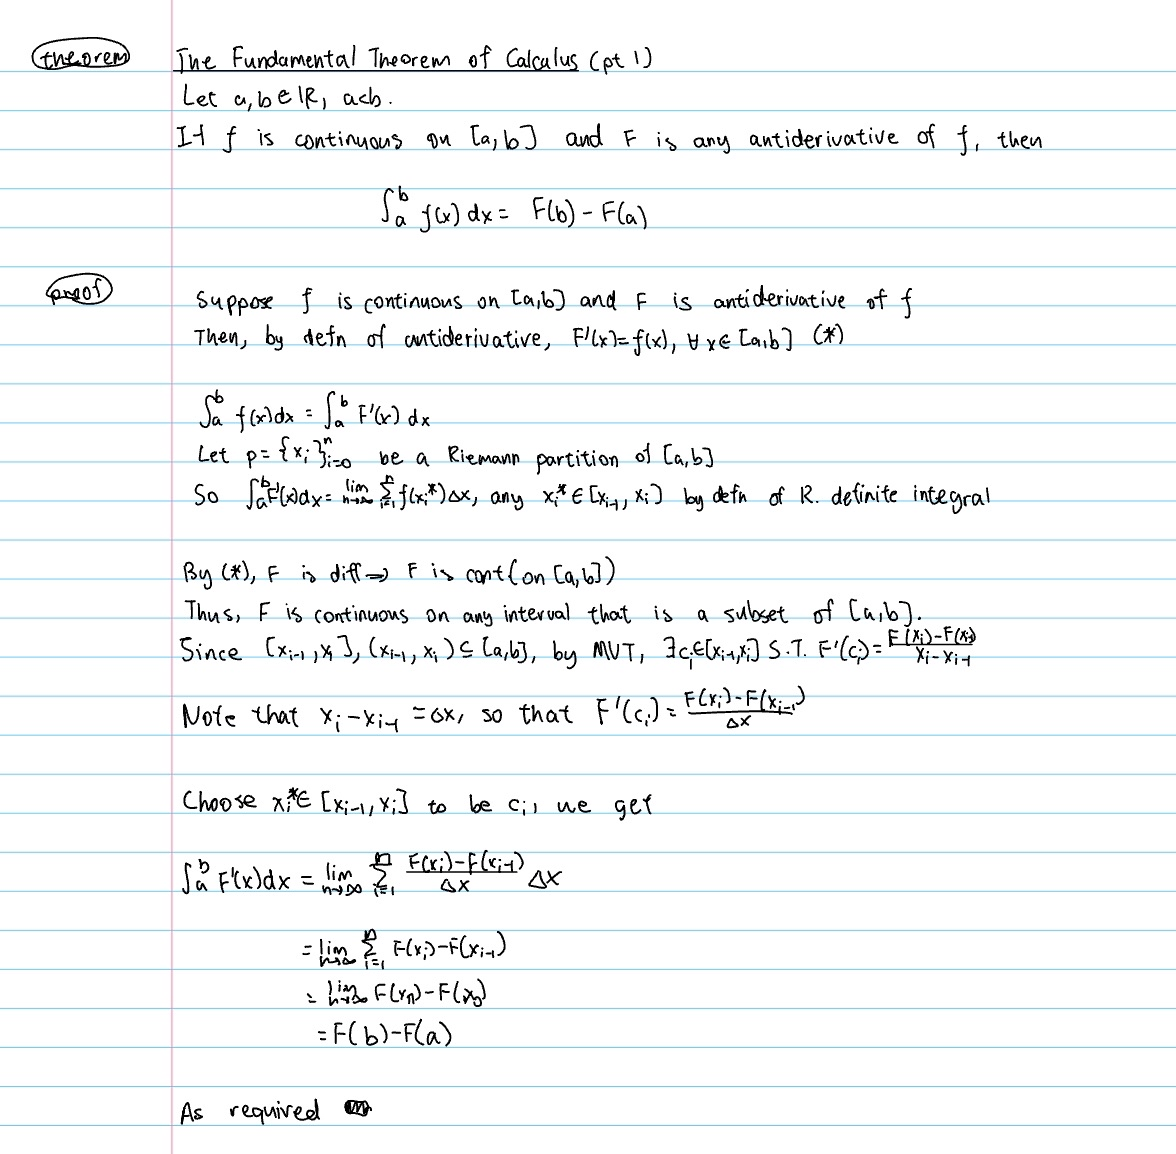 theorem
The Fundamental Theorem of Calculus (pt 1)
Let a, b ∈ ℝ, a<b.
If f is continuous on [a, b] and F is any antiderivative of f, then
∫_a^b f(x) dx = F(b) - F(a)
proof
Suppose f is continuous on [a,b] and F is antiderivative of f
Then, by defn of antiderivative, F'(x)=f(x), ∀ x ∈ [a,b] (*)
∫_a^b f(x)dx = ∫_a^b F'(x) dx
Let p = {x_i}_{i=0}^n be a Riemann partition of [a,b]
So ∫_a^b F'(x)dx = lim_{n→∞} Σ_{i=1}^n f(x_i*)Δx, any x_i* ∈ [x_{i-1}, x_i] by defn of R. definite integral
By (*), F is diff ⇒ F is cont (on [a,b])
Thus, F is continuous on any interval that is a subset of [a,b].
Since [x_{i-1}, x_i], (x_{i-1}, x_i) ⊆ [a,b], by MVT, ∃c_i∈[x_{i-1},x_i] S.T. F'(c_i) = (F(x_i)-F(x_i))/(x_i-x_{i-1})
Note that x_i - x_{i-1} = Δx, so that F'(c_i) = (F(x_i)-F(x_{i-1}))/Δx
Choose x_i* ∈ [x_{i-1}, x_i] to be c_i, we get
∫_a^b F'(x)dx = lim_{n→∞} Σ_{i=1}^n (F(x_i)-F(x_{i-1}))/Δx Δx
= lim_{n→∞} Σ_{i=1}^n F(x_i)-F(x_{i-1})
= lim_{n→∞} F(x_n)-F(x_0)
= F(b)-F(a)
As required